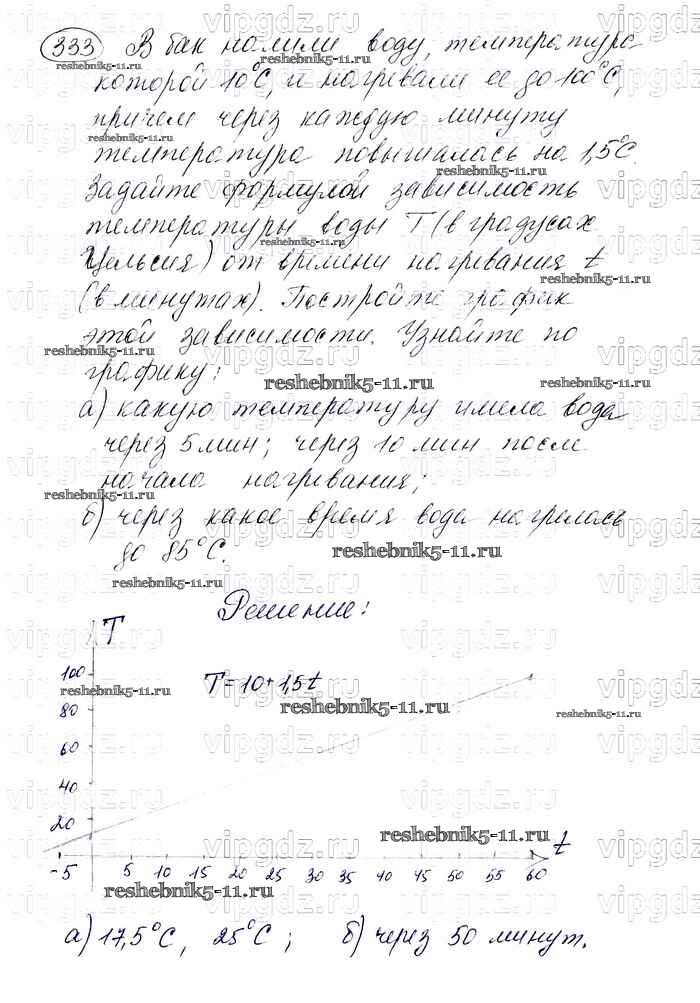 333 В бак налили воду, температура
которой 10°С, и нагревали ее до 100°С,
причем через каждую минуту
температура повышалась на 1,5°С.
Задайте формулой зависимость
температуры воды Т (в градусах
Цельсия) от времени нагревания t
(в минутах). Постройте график
этой зависимости. Узнайте по
графику:
а) какую температуру имела вода
через 5 мин; через 10 мин после
начала нагревания;
б) через какое время вода нагрелась
до 85°С.
Решение:
T
T=10+1,5t
100
80
60
40
20
t
-5 5 10 15 20 25 30 35 40 45 50 55 60
а) 17,5°С, 25°С; б) через 50 минут.
reshebnik5-11.ru
vipgdz.ru